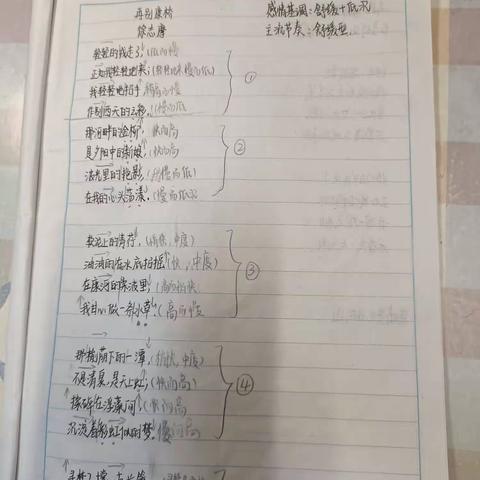 再别康桥
徐志摩
感情基调：舒缓+低沉
主流节奏：舒缓型
轻轻的我走了，(低而慢
正如我轻轻地来；(稍轻比来慢而低)
我轻轻地招手，稍高而慢
作别西天的云彩。(慢而低
①
那河畔的金柳，快而高
是夕阳中的新娘，(快而高
波光里的艳影，慢而低)
在我的心头荡漾。(慢而低沉
②
软泥上的青荇，(稍快，中度)
油油的在水底招摇；快，中度)
在康河的柔波里，(高而稍快
我甘心做一条水草！(高而慢
③
那榆荫下的一潭，稍快，中度)
不是清泉，是天上虹；(快而高)
揉碎在浮藻间，快而高
沉淀着彩虹似的梦。慢而高
④